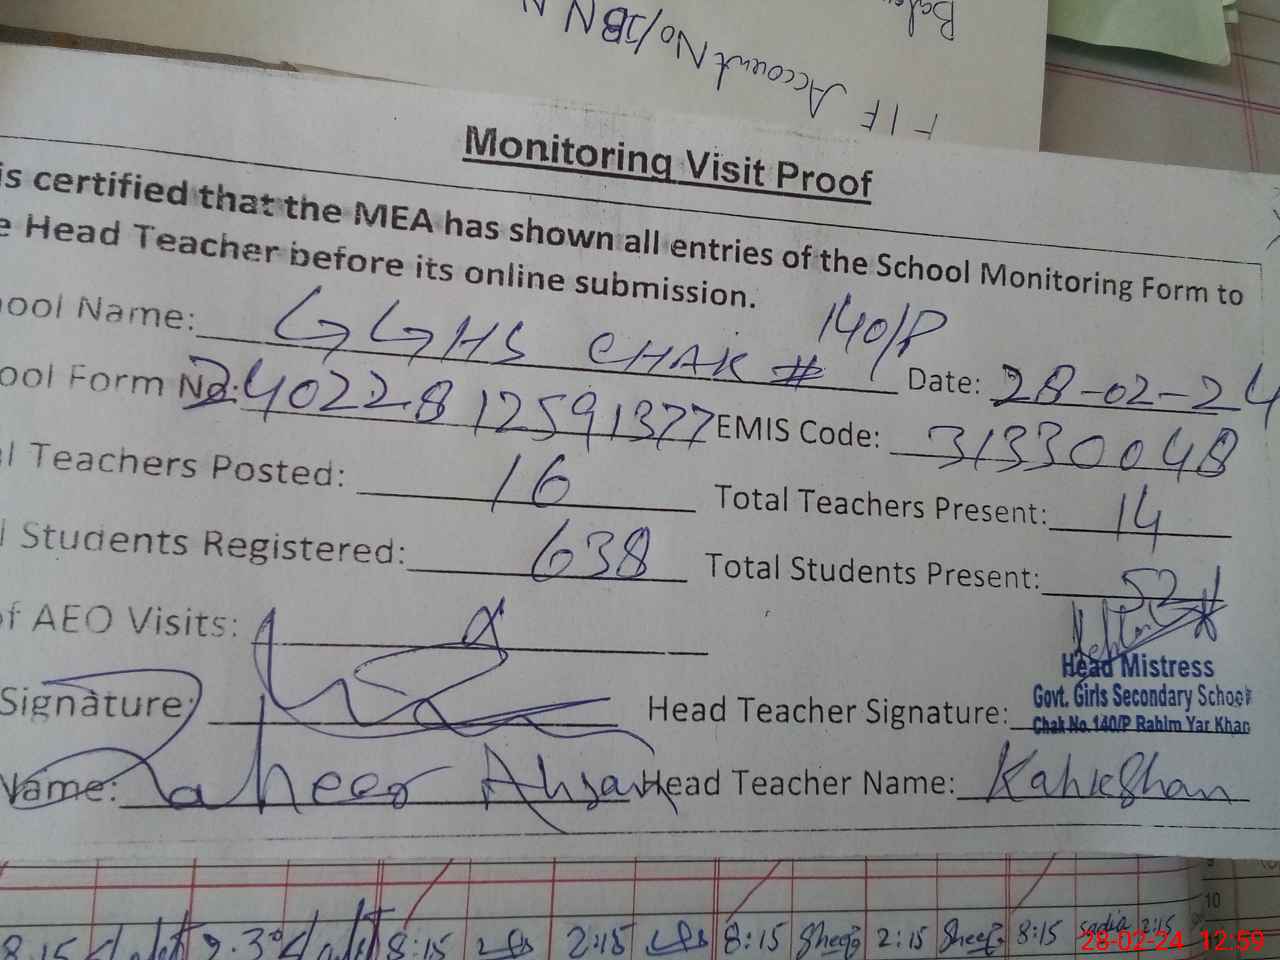 FIF Account No/IBN N
Monitoring Visit Proof
is certified that the MEA has shown all entries of the School Monitoring Form to
e Head Teacher before its online submission.
hool Name: GGHS CHAK # 140/P Date: 28-02-24
ool Form No: 24022812591377 EMIS Code: 31330048
l Teachers Posted: 16 Total Teachers Present: 14
l Students Registered: 638 Total Students Present: 521
of AEO Visits:
Head Mistress
Govt. Girls Secondary School
Chak No. 140/P Rahim Yar Khan
Signature: Head Teacher Signature:
Name: Zaheer Ahsan Head Teacher Name: Kahkshan
10
8:15 8:15 2:15 8:15 2:15 8:15 sadia 2:15
28-02-24 12:59